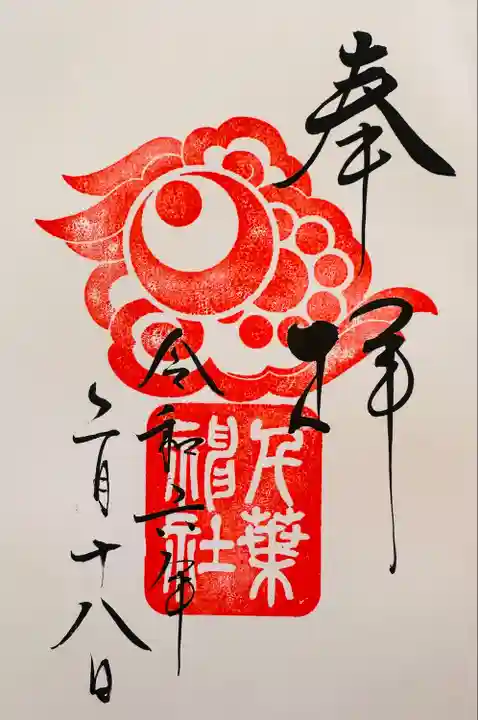 奉拝
千葉神社
令和六年
三月十八日